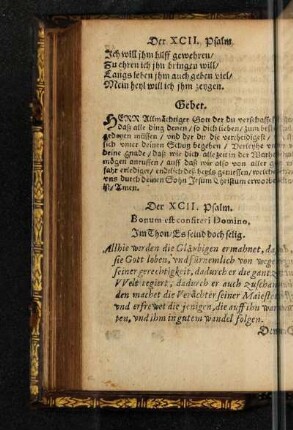 Der XCII. Psalm.
Ich will jhm hülf gewehren/
Zu ehren ich jhn bringen will/
Langs leben jhm auch geben viel/
Mein heyl will ich jhm zeygen.
Gebet.
HERR Allmächtiger Gott der du verschaffest
daß alle ding denen/ so dich lieben/ zum besten
gedyen müssen/ vnd der du die vertheidigst/
sich vnter deinen Schutz begeben/ Verleyhe vns
deine gnad/ daß wir dich allezeit in der Warheit
mögen anruffen/ auff daß wir also von aller ge-
fahr erlediget/ endtlich deß heyls geniessen/ welches
vns durch deinen Sohn Jesum Christum erworben
ist/ Amen.
Der XCII. Psalm.
Bonum est confiteri Domino,
Im Thon/ Es seind doch selig.
Allhie werden die Gläubigen ermahnet, daß
sie Gott loben, vnd fürnemlich von wegen
seiner gerechtigkeit, dadurch er die gantze
Welt regiert, dadurch er auch zuschanden
den machet die Verächter seiner Maiestet
vnd erfrewet die jenigen, die auff ihn war-
ten, vnd ihm in gutem wandel folgen.